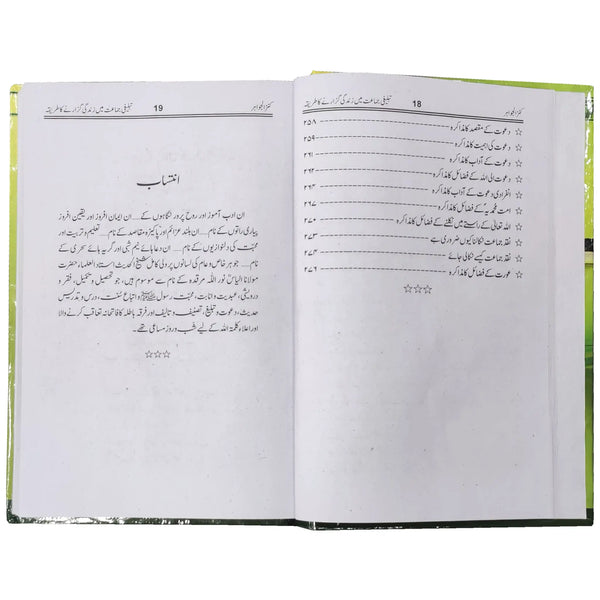 کنزالجواہر 18 تبلیغی جماعت میں زندگی گزارنے کا طریقہ
☆ دعوت کے مقصد کا مذاکرہ ۲۵۸
☆ دعوت کی اہمیت کا مذاکرہ ۲۵۹
☆ دعوت کے آداب کا مذاکرہ ۲۶۱
☆ دعوت الی اللہ کے فضائل کا مذاکرہ ۲۶۲
☆ انفرادی دعوت کے آداب کا مذاکرہ
☆ امت محمدیہ کے فضائل کا مذاکرہ
☆ اللہ تعالی کے راستے میں نکلنے کے فضائل کا مذاکرہ ۲۷۰
☆ نقد جماعت نکالنا کیوں ضروری ہے ۲۷۳
☆ نقد جماعت کیسے نکالی جائے ۲۷۴
☆ عورت کے فضائل کا مذاکرہ ۲۷۶
☆☆☆
کنزالجواہر 19 تبلیغی جماعت میں زندگی گزارنے کا طریقہ
انتساب
ان ادب آموز اور روح پرور نگاہوں کے.... ان ایمان افروز اور یقین افروز
پیاری راتوں کے نام.... ان بلند عزائم اور پاکیزہ مقاصد کے نام.... تعلیم و تربیت اور
محبت کی دلنوازیوں کے نام.... ان دعاہائے نیم شبی اور گریہ ہائے سحری کے
نام.... جو ہر خاص و عام کی لسانوں پر ولی کامل شیخ الحدیث استاد العلماء حضرت
مولانا الیاس نور اللہ مرقدہ کے نام سے موسوم ہیں، جو تحصیل و تکمیل، فقر و
درویشی، عبدیت و انابت، محبت رسول ﷺ و اتباع سنت، درس و تدریس
حدیث، دعوت و تبلیغ، تصنیف و تالیف اور فرقہ باطلہ کا فاتحانہ تعاقب کرنے والا
اور اعلاء کلمۃ اللہ کے لیے شب و روز مساعی تھے۔
☆☆☆